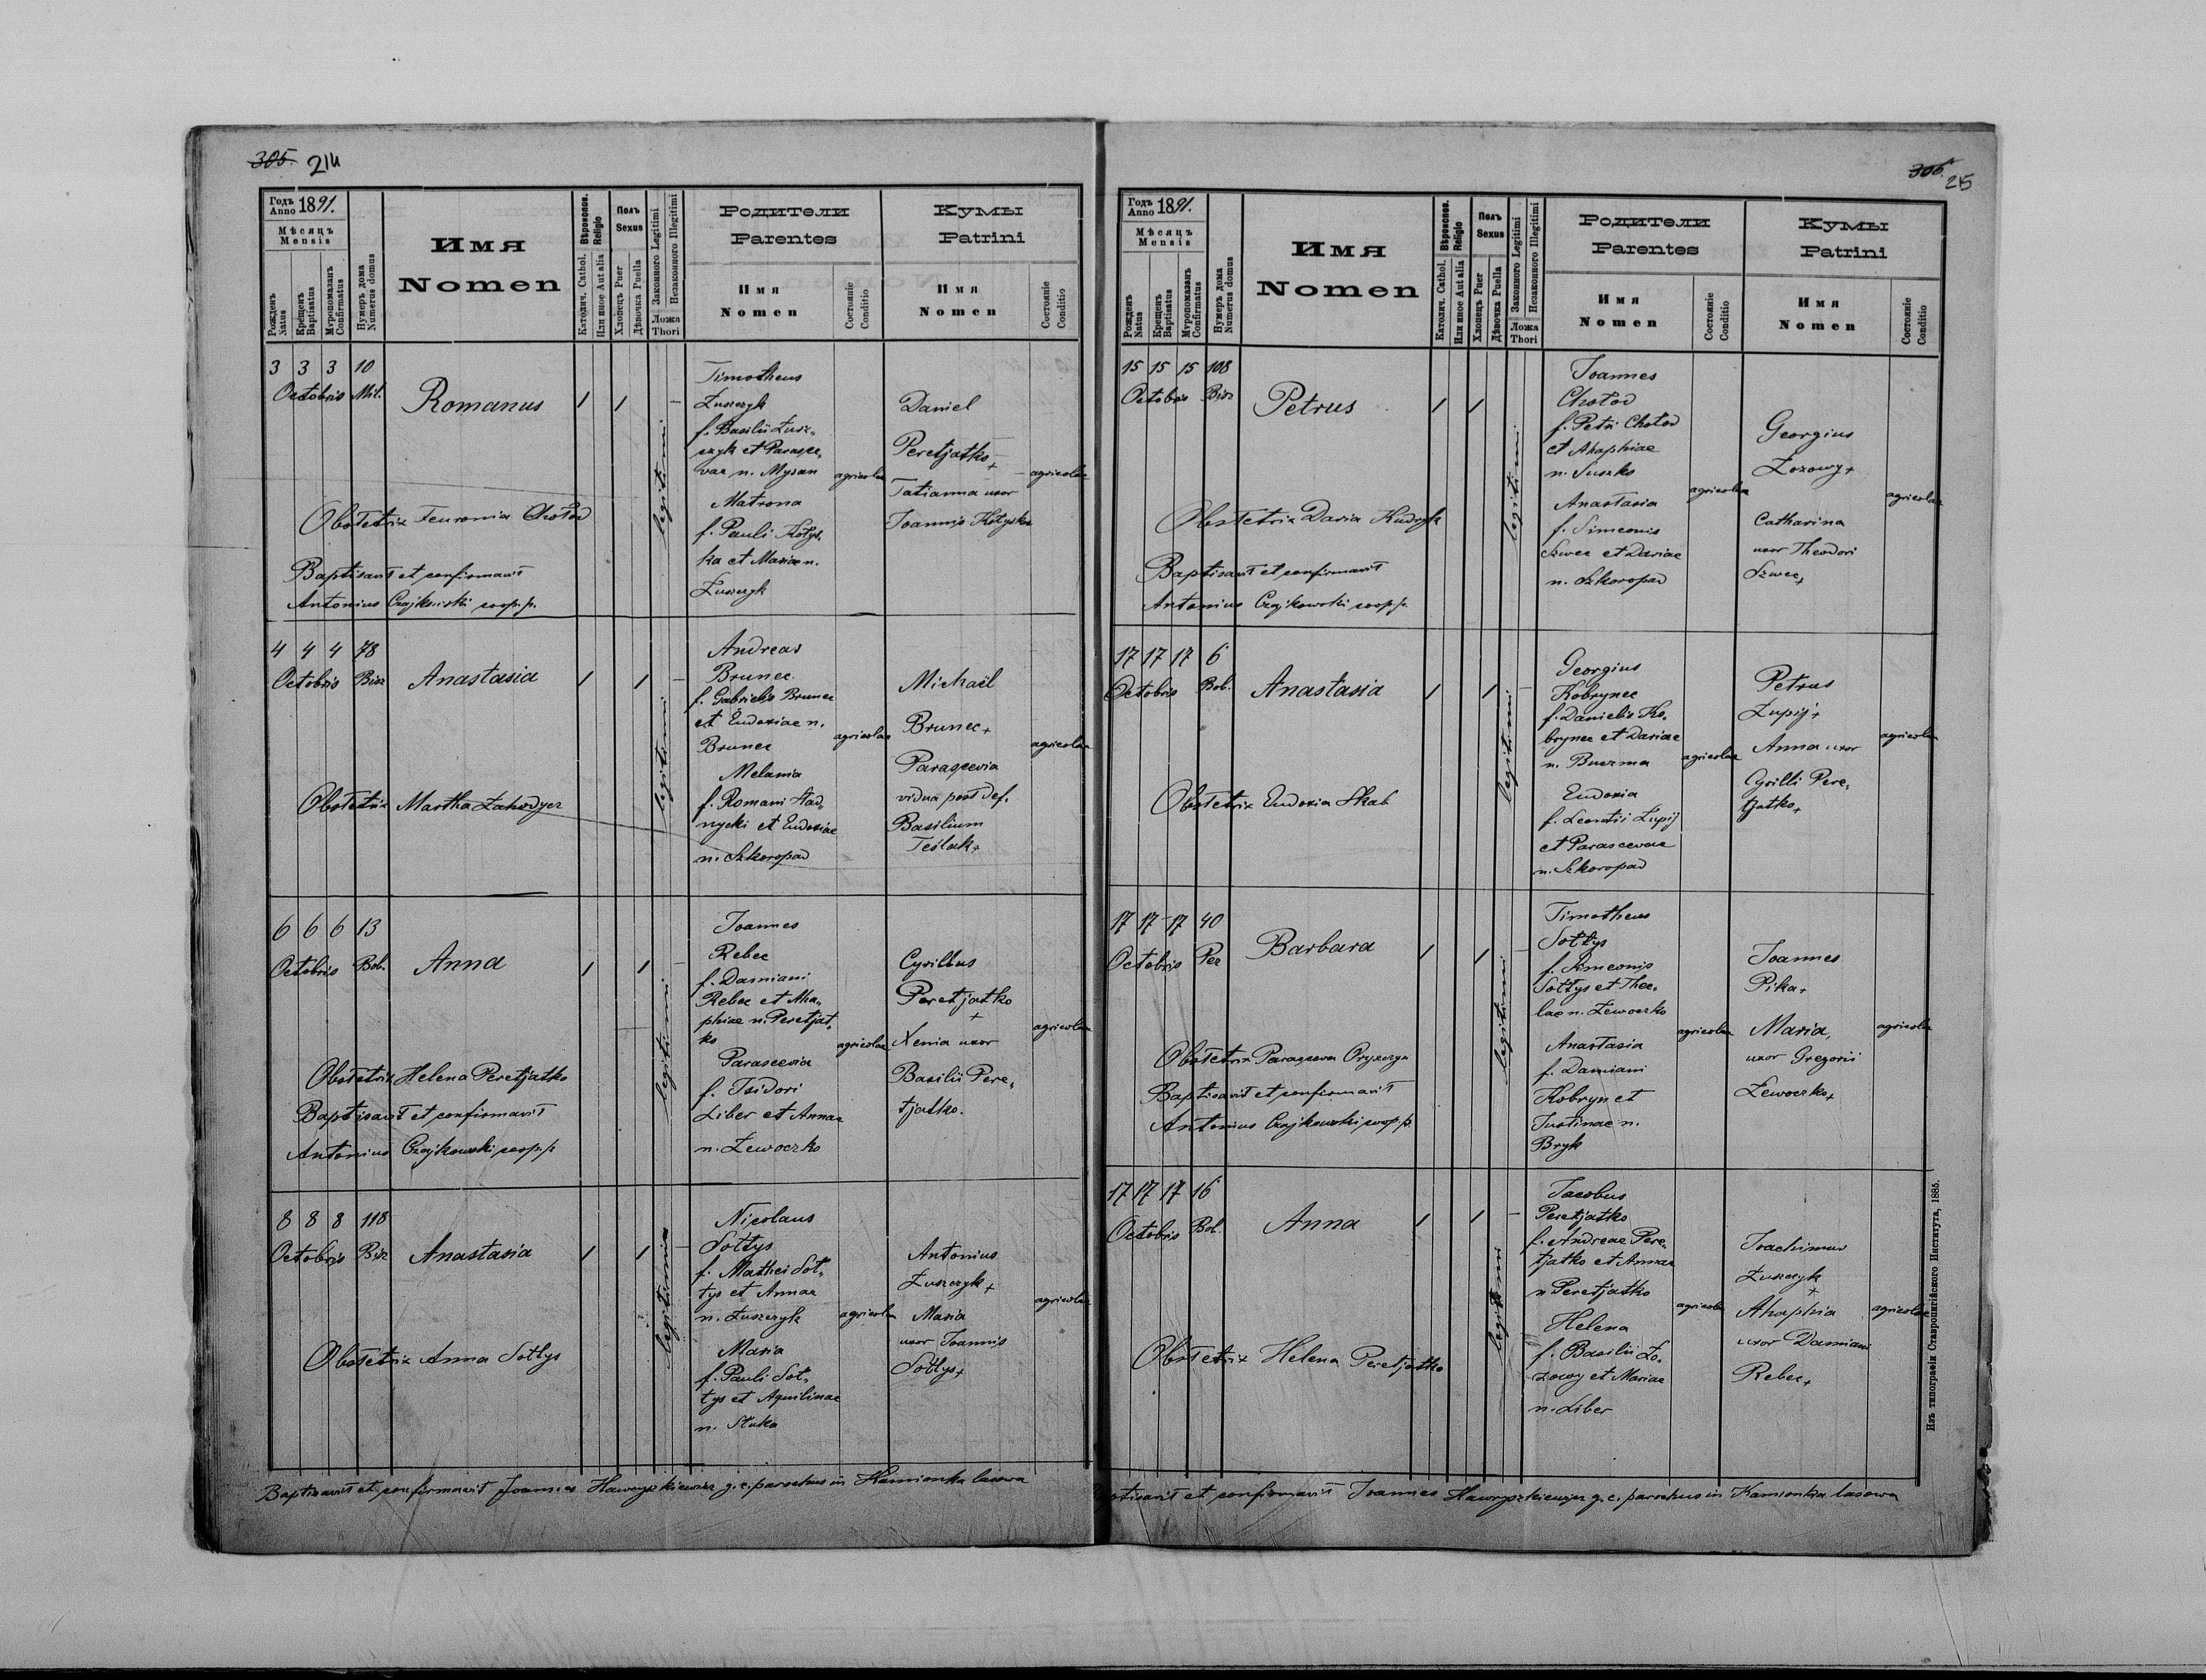 305. 214
Годъ Anno 1891.
Мѣсяцъ Mensis
Рожденъ Natus
Крещенъ Baptisatus
Муропомазанъ Confirmatus
Нумеръ дома Numerus domus
Имя Nomen
Вѣроиспов. Religio
Католич. Cathol.
Или иное Aut alia
Полъ Sexus
Хлопецъ Puer
Дѣвочка Puella
Законного Legitimi
Незаконного Illegitimi
Ложа Thori
Родители Parentes
Имя Nomen
Состояніе Conditio
Кумы Patrini
Имя Nomen
Состояніе Conditio
3 3 3 10
Octobris Mił.
Romanus
legitimi
Timotheus
Łuszczyk
f. Basilii Łusz-
czyk et Parasce-
vae n. Myzan
Matrona
f. Pauli Kotys-
ka et Mariae n.
Łuszczyk
agricolae
Daniel
Peretjatko +
Tatianna uxor
Joannis Kotyska
agricolae
Obstetrix Feuronia Chołod
Baptisavit et confirmavit
Antonius Czajkowski coop. p.
4 4 4 78
Octobris Bisz
Anastasia
legitimi
Andreas
Brunec
f. Gabrielis Brunec
et Eudoxiae n.
Brunec
Melania
f. Romani Stad-
nycki et Eudoxiae
n. Szkoropad
agricolae
Michaël
Brunec +
Parascevia
vidua post def.
Basilium
Teślak +
agricolae
Obstetrix Martha Zahodycz
6 6 6 13
Octobris Bob.
Anna
legitimi
Joannes
Rebec
f. Damiani
Rebec et Aha-
phiae n. Peretjat-
ko
Parascevia
f. Isidori
Liber et Annae
n. Lewoczko
agricolae
Cyrillus
Peretjatko
+
Xenia uxor
Basilii Pere-
tjatko.
agricolae
Obstetrix Helena Peretjatko
Baptisavit et confirmavit
Antonius Czajkowski coop. p.
8 8 8 118
Octobris Bisz
Anastasia
legitimi
Nicolaus
Sołtys
f. Mathei Soł-
tys et Annae
n. Łuszczyk
Maria
f. Pauli Soł-
tys et Aquilinae
n. Stuka
agricolae
Antonius
Łuszczyk +
Maria
uxor Joannis
Sołtys +
agricolae
Obstetrix Anna Sołtys
Baptisavit et confirmavit Joannes Hawryszkiewicz g. c. parochus in Kamionka lasowa
306. 215
Годъ Anno 1891.
Мѣсяцъ Mensis
Рожденъ Natus
Крещенъ Baptisatus
Муропомазанъ Confirmatus
Нумеръ дома Numerus domus
Имя Nomen
Вѣроиспов. Religio
Католич. Cathol.
Или иное Aut alia
Полъ Sexus
Хлопецъ Puer
Дѣвочка Puella
Законного Legitimi
Незаконного Illegitimi
Ложа Thori
Родители Parentes
Имя Nomen
Состояніе Conditio
Кумы Patrini
Имя Nomen
Состояніе Conditio
15 15 15 108
Octobris Bisz
Petrus
legitimi
Joannes
Chołod
f. Petri Chołod
et Ahaphiae
n. Suszko
Anastasia
f. Simeonis
Szwec et Dariae
n. Szkoropad
agricolae
Georgius
Łozowy +
Catharina
uxor Theodori
Szwec +
agricolae
Obstetrix Daria Kudryk
Baptisavit et confirmavit
Antonius Czajkowski coop. p.
17 17 17 6
Octobris Bob.
Anastasia
legitimi
Georgius
Kobrynec
f. Danielis Ko-
brynec et Dariae
n. Buczma
Eudoxia
f. Leontii Łupij
et Parascevae
n. Szkoropad
agricolae
Petrus
Łupij +
Anna uxor
Cyrilli Pere-
tjatko +
agricolae
Obstetrix Eudoxia Skab
17 17 17 40
Octobris Per
Barbara
legitimi
Timotheus
Sołtys
f. Simeonis
Sołtys et Thec-
lae n. Lewoczko
Anastasia
f. Damiani
Kobryn et
Justinae n.
Bryk
agricolae
Joannes
Pika +
Maria,
uxor Gregorii
Lewoczko +
agricolae
Obstetrix Parasceva Oryszczyn
Baptisavit et confirmavit
Antonius Czajkowski coop. p.
17 17 17 16
Octobris Bob.
Anna
legitimi
Jacobus
Peretjatko
f. Andreae Pere-
tjatko et Annae
n. Peretjatko
Helena
f. Basilii Ło-
zowy et Mariae
n. Liber
agricolae
Joachimus
Łuszczyk
+
Ahaphia
uxor Damiani
Rebec +
agricolae
Obstetrix Helena Peretjatko
Baptisavit et confirmavit Joannes Hawryszkiewicz g. c. parochus in Kamionka lasowa
Изъ типографіи Ставропигійского Института, 1885.